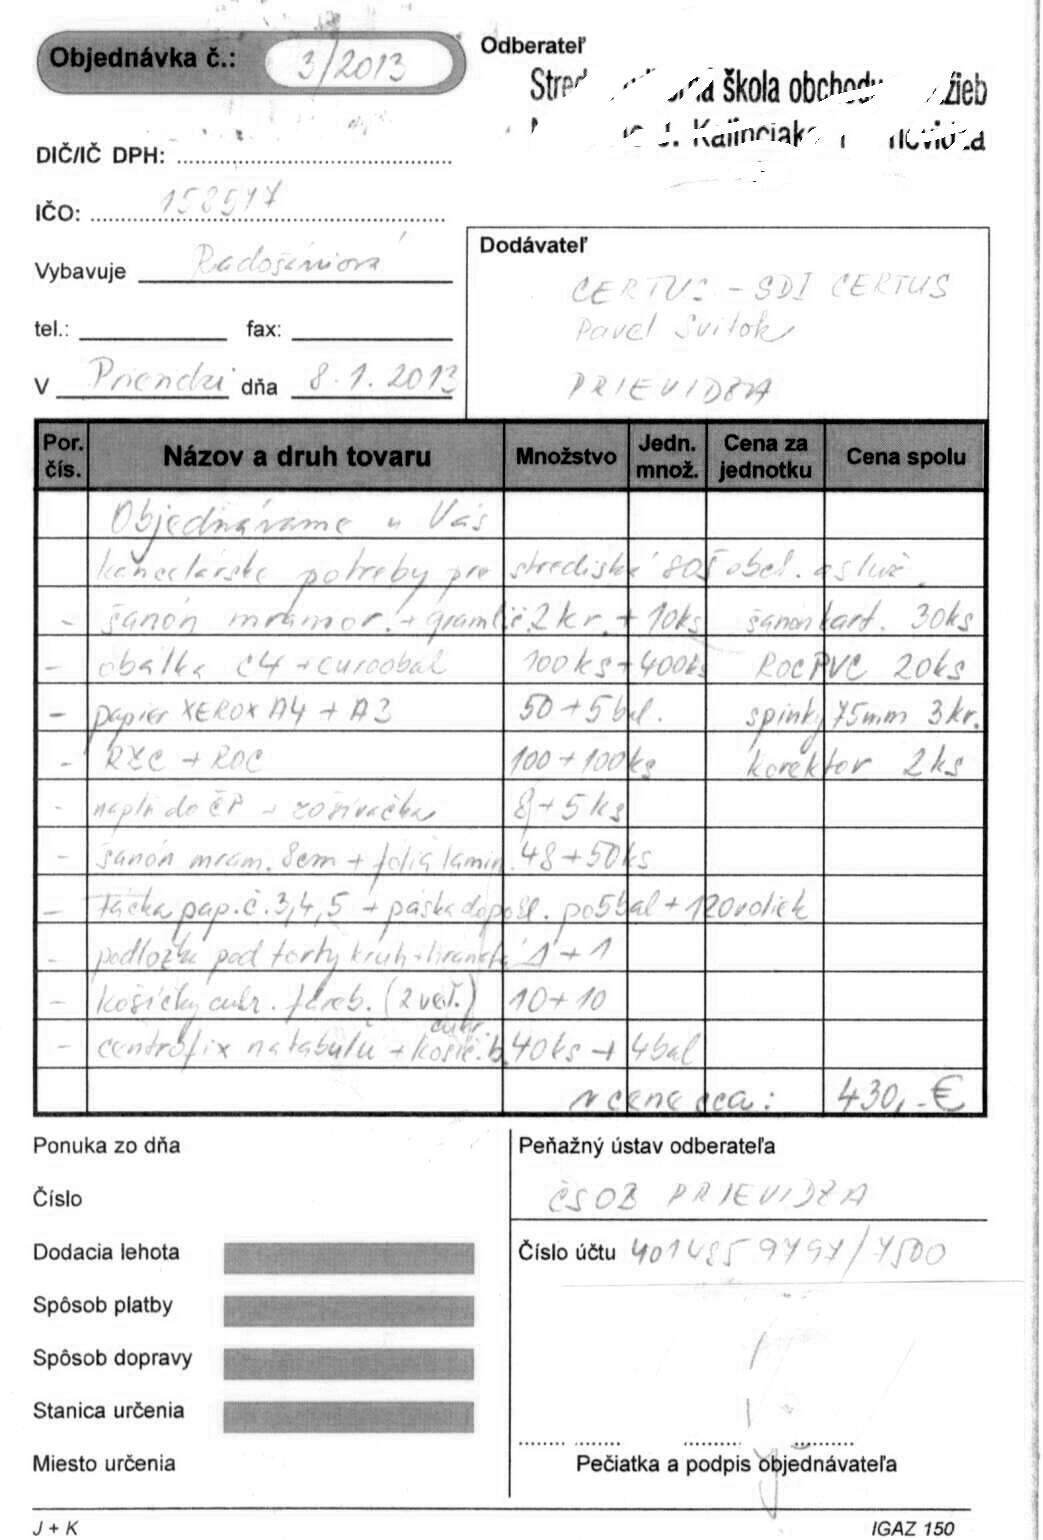 Objednávka č.: 3/2013
Odberateľ
škola obchodu
Kalinčiaka
DIČ/IČ DPH:
IČO: 158577
Vybavuje Radošániová
Dodávateľ
CERTUS - SDI CERTUS
Pavel Svitok
PRIEVIDZA
tel.: fax:
V Prievidzi dňa 8.1.2013
Por. čís. Názov a druh tovaru Množstvo Jedn. množ. Cena za jednotku Cena spolu
Objednávame u Vás
kancelárske potreby pre strediská SOŠ obch. a služ.
- šanón mramor. + 2kr. + 10ks šanón kart. 30ks
- obálka C4 + euroobal 100ks + 400ks ROC PVC 20ks
- papier XEROX A4 + A3 50 + 5bal. spinky 75mm 3kr.
- RZC + ROC 100 + 100ks korektor 2ks
- náplň do ČP + zošívačka 8 + 5ks
- šanón mram. 8cm + folia lamin. 48 + 50ks
- tácka pap. č. 3,4,5 + páska do po 5bal + 120roliek
- podložka pod torty kruh + hranatá 1 + 1
- košíčky cukr. fareb. (2 veľ.) 10 + 10
- centrofix na tabuľu + košíč. cukr. b. 40ks + 4bal
cena cca: 430,-€
Ponuka zo dňa
Číslo
Dodacia lehota
Spôsob platby
Spôsob dopravy
Stanica určenia
Miesto určenia
Peňažný ústav odberateľa
ČSOB PRIEVIDZA
Číslo účtu 4014859797/7500
Pečiatka a podpis objednávateľa
J + K
IGAZ 150